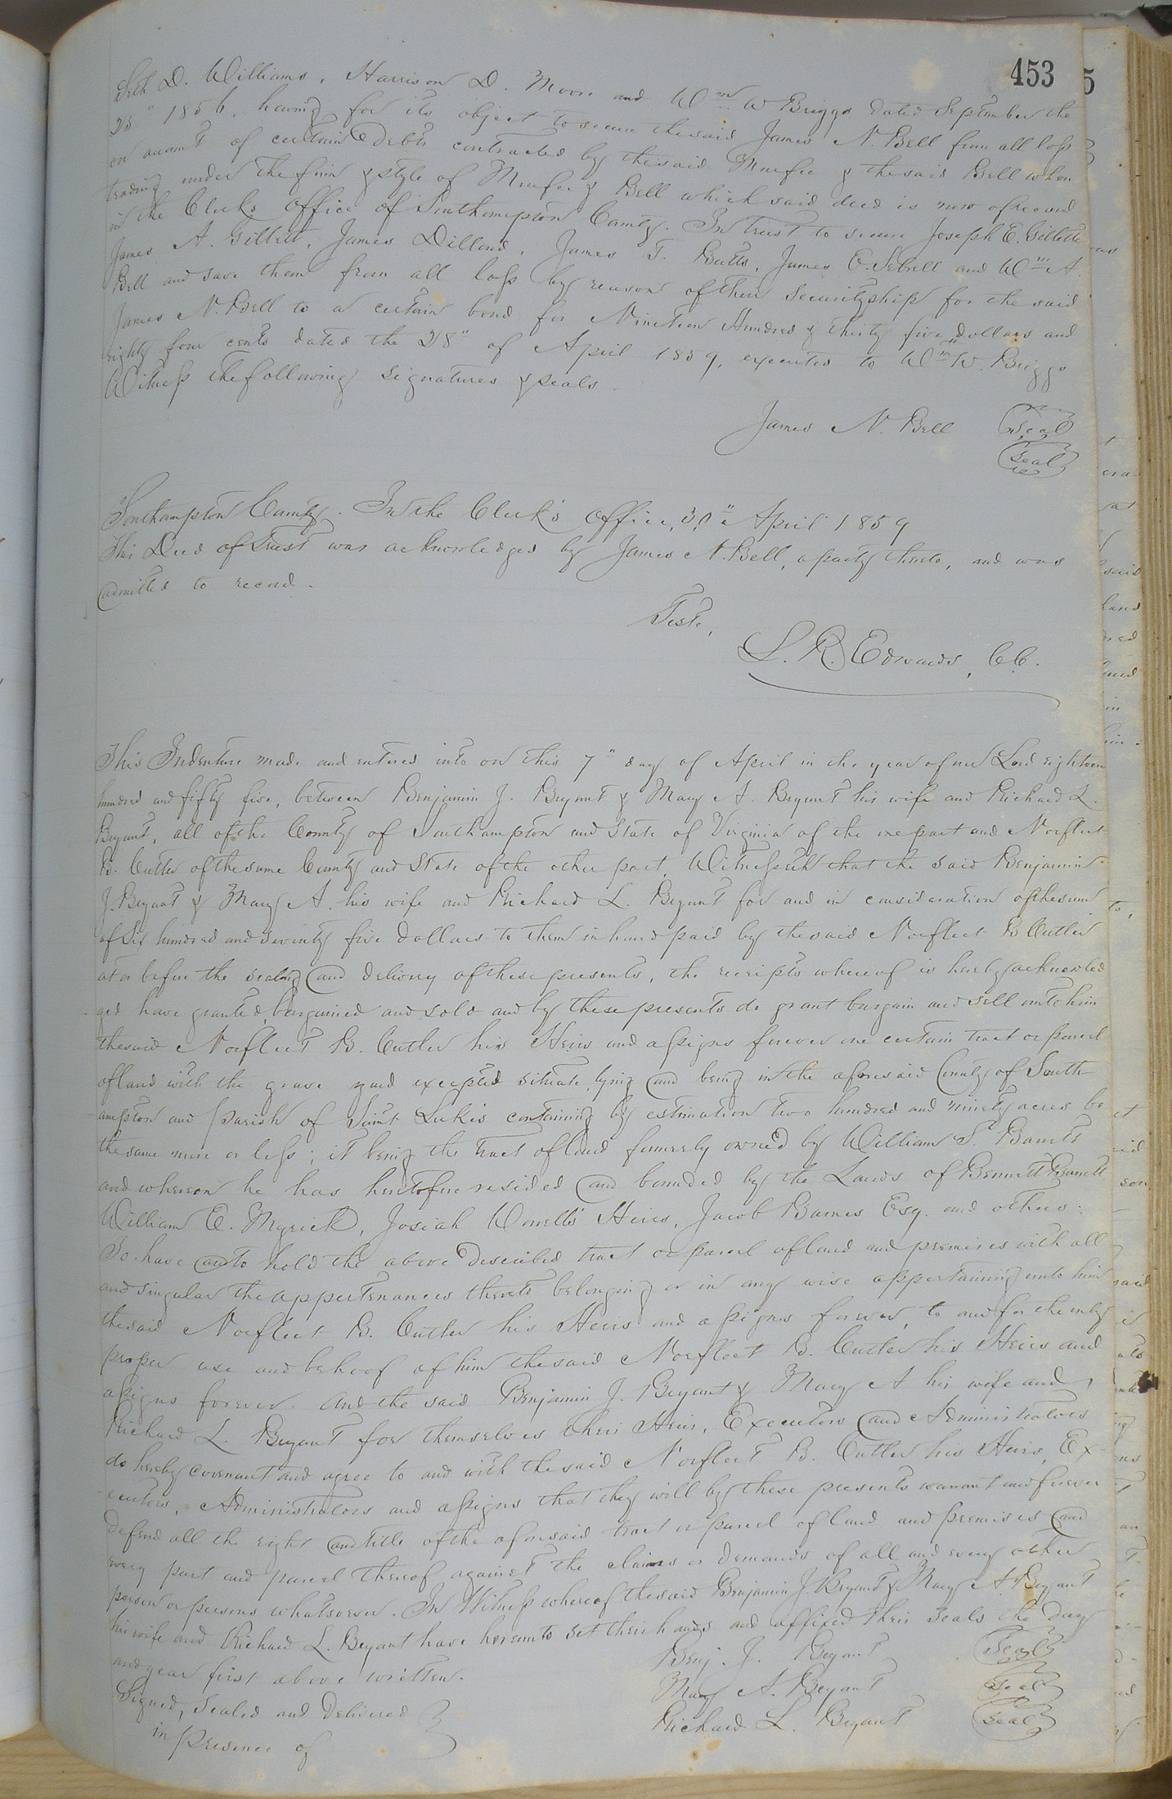 453
Seth D. Williams, Harrison D. Moore and Wm W Briggs dated September the
23" 1856, having for its object to secure the said James N. Bell from all loss
on account of certain debts contracted by the said Murfee & the said Bell when
trading under the firm & style of Murfee & Bell which said deed is now of record
in the Clerks Office of Southampton County. In trust to secure Joseph E. Gillette
James A. Gillett, James Dillard, James T. Butts, James E. Sebrell and Wm A.
Bell and save them from all loss by reason of their securityship for the said
James N. Bell to a certain bond for Nineteen Hundred & thirty five dollars and
eighty four cents dated the 28" of April 1859, executed to Wm W. Briggs
Witness the following signatures & seals.
James N. Bell Seal
Seal
Southampton County. In the Clerk's Office, 30" April 1859
This Deed of Trust was acknowledged by James N. Bell, a party thereto, and was
admitted to record.
Teste,
L. R. Edwards, CC.
This Indenture made and entered into on this 7" day of April in the year of our Lord eighteen
hundred and fifty five, between Benjamin J. Bryant & Mary A. Bryant his wife and Richard L.
Bryant, all of the County of Southampton and State of Virginia of the one part and Norfleet
B. Cutler of the same County and State of the other part, Witnesseth that the said Benjamin
J. Bryant & Mary A. his wife and Richard L. Bryant for and in consideration of the sum
of Six hundred and Seventy five dollars to them in hand paid by the said Norfleet B Cutler
at or before the sealing and delivery of these presents, the receipts whereof is hereby acknowled
ged have granted, bargained and sold and by these presents do grant bargain and sell unto him
the said Norfleet B. Cutler his Heirs and assigns forever one certain tract or parcel
of land with the grave yard excepted situate lying and being in the aforesaid County of South
ampton and parish of Saint Luke's containing by estimation two hundred and ninety acres be
the same more or less; it being the tract of land formerly owned by William S. Barrett
and whereon he has heretofore resided and bounded by the Lands of Bennett Barrett
William E. Myrick, Josiah Worrell's Heirs, Jacob Barnes Esq. and others:
To have and to hold the above described tract or parcel of land and premises with all
and singular the appertenances thereto belonging or in any wise appertaining unto him
the said Norfleet B. Cutler his Heirs and assigns forever, to and for the only
proper use and behoof of him the said Norfleet B. Cutler his Heirs and
assigns forever. And the said Benjamin J. Bryant & Mary A his wife and
Richard L. Bryant for themselves their Heirs, Executors and Administrators
do hereby covenant and agree to and with the said Norfleet B. Cutler his Heirs, Ex-
ecutors, Administrators and assigns that they will by these presents warrant and forever
defend all the right and title of the aforesaid tract or parcel of land and premises and
every part and parcel thereof against the claims or demands of all and every other
person or persons whatsoever. In Witness whereof the said Benjamin J. Bryant & Mary A Bryant
his wife and Richard L. Bryant have hereunto set their hands and affixed their seals the day
and year first above written.
Benj. J. Bryant Seal
Signed, Sealed and Delivered
Mary A. Bryant Seal
in presence of
Richard L. Bryant Seal